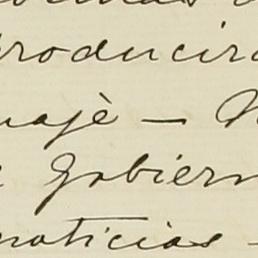 producir
najè —
Gobiern
noticias -